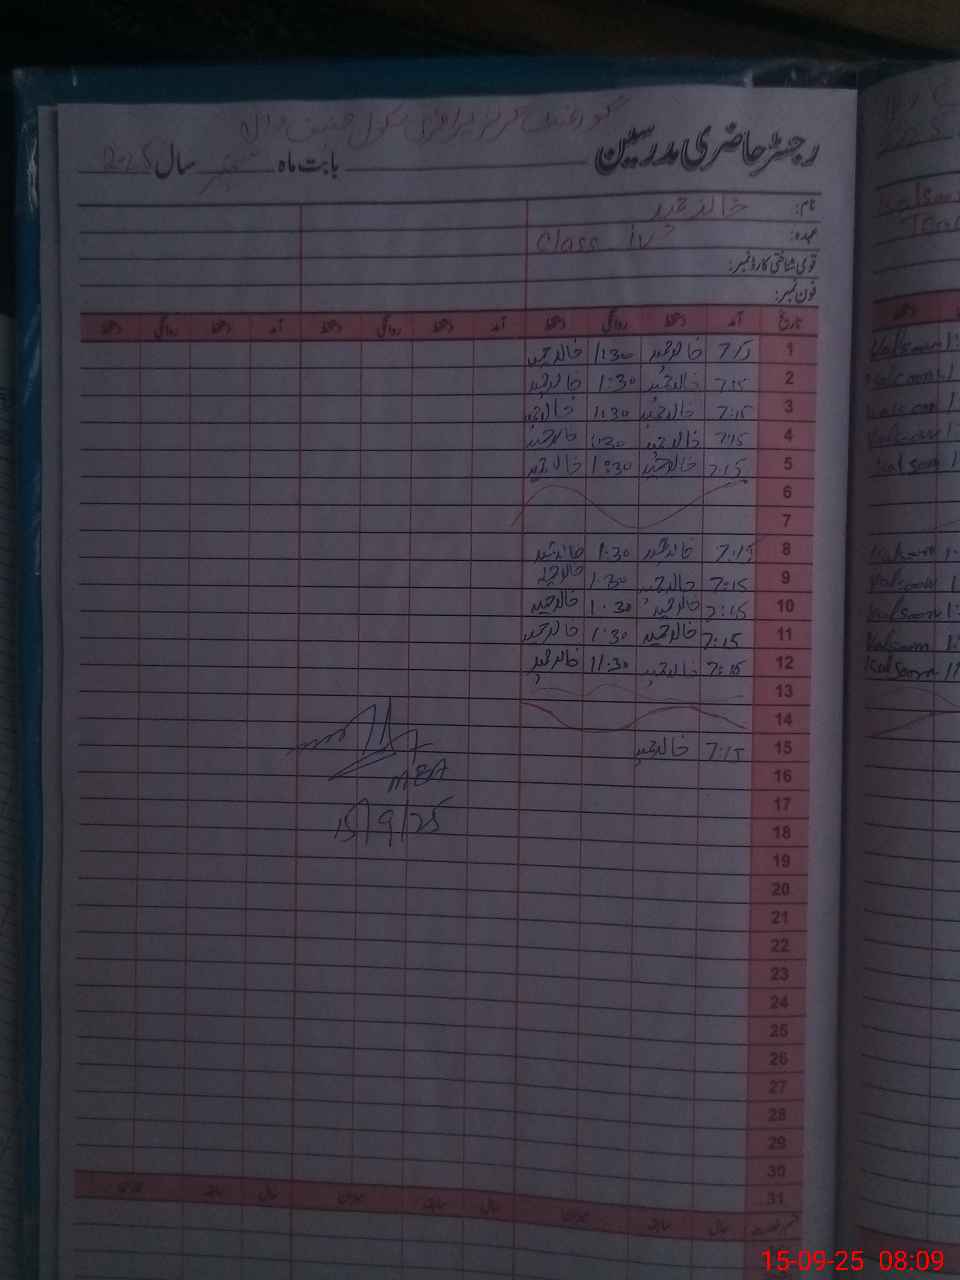 گورنمنٹ گرلز پرائمری سکول
رجسٹر حاضری مدرسین بابت ماہ ستمبر سال 2025
نام: خالد حمید
عہدہ: Class iv
قومی شناختی کارڈ نمبر:
فون نمبر:
تاریخ آمد دستخط روانگی دستخط آمد دستخط روانگی دستخط آمد دستخط روانگی دستخط
1 7:15 خالد حمید 1:30 خالد حمید
2 7:15 خالد حمید 1:30 خالد حمید
3 7:15 خالد حمید 1:30 خالد حمید
4 7:15 خالد حمید 1:30 خالد حمید
5 7:15 خالد حمید 1:30 خالد حمید
6
7
8 7:15 خالد حمید 1:30 خالد حمید
9 7:15 خالد حمید 1:30 خالد حمید
10 7:15 خالد حمید 1:30 خالد حمید
11 7:15 خالد حمید 1:30 خالد حمید
12 7:15 خالد حمید 11:30 خالد حمید
13
14
15 7:15 خالد حمید
16
MEA
17
15/9/25
18
19
20
21
22
23
24
25
26
27
28
29
30
31
حال سابقہ میزان حال سابقہ میزان حال سابقہ میزان
Kalsoom
Kalsoom
Kalsoom
Kalsoom
Kalsoom
Kalsoom
Kalsoom
Kalsoom
Kalsoom
Kalsoom
15-09-25 08:09